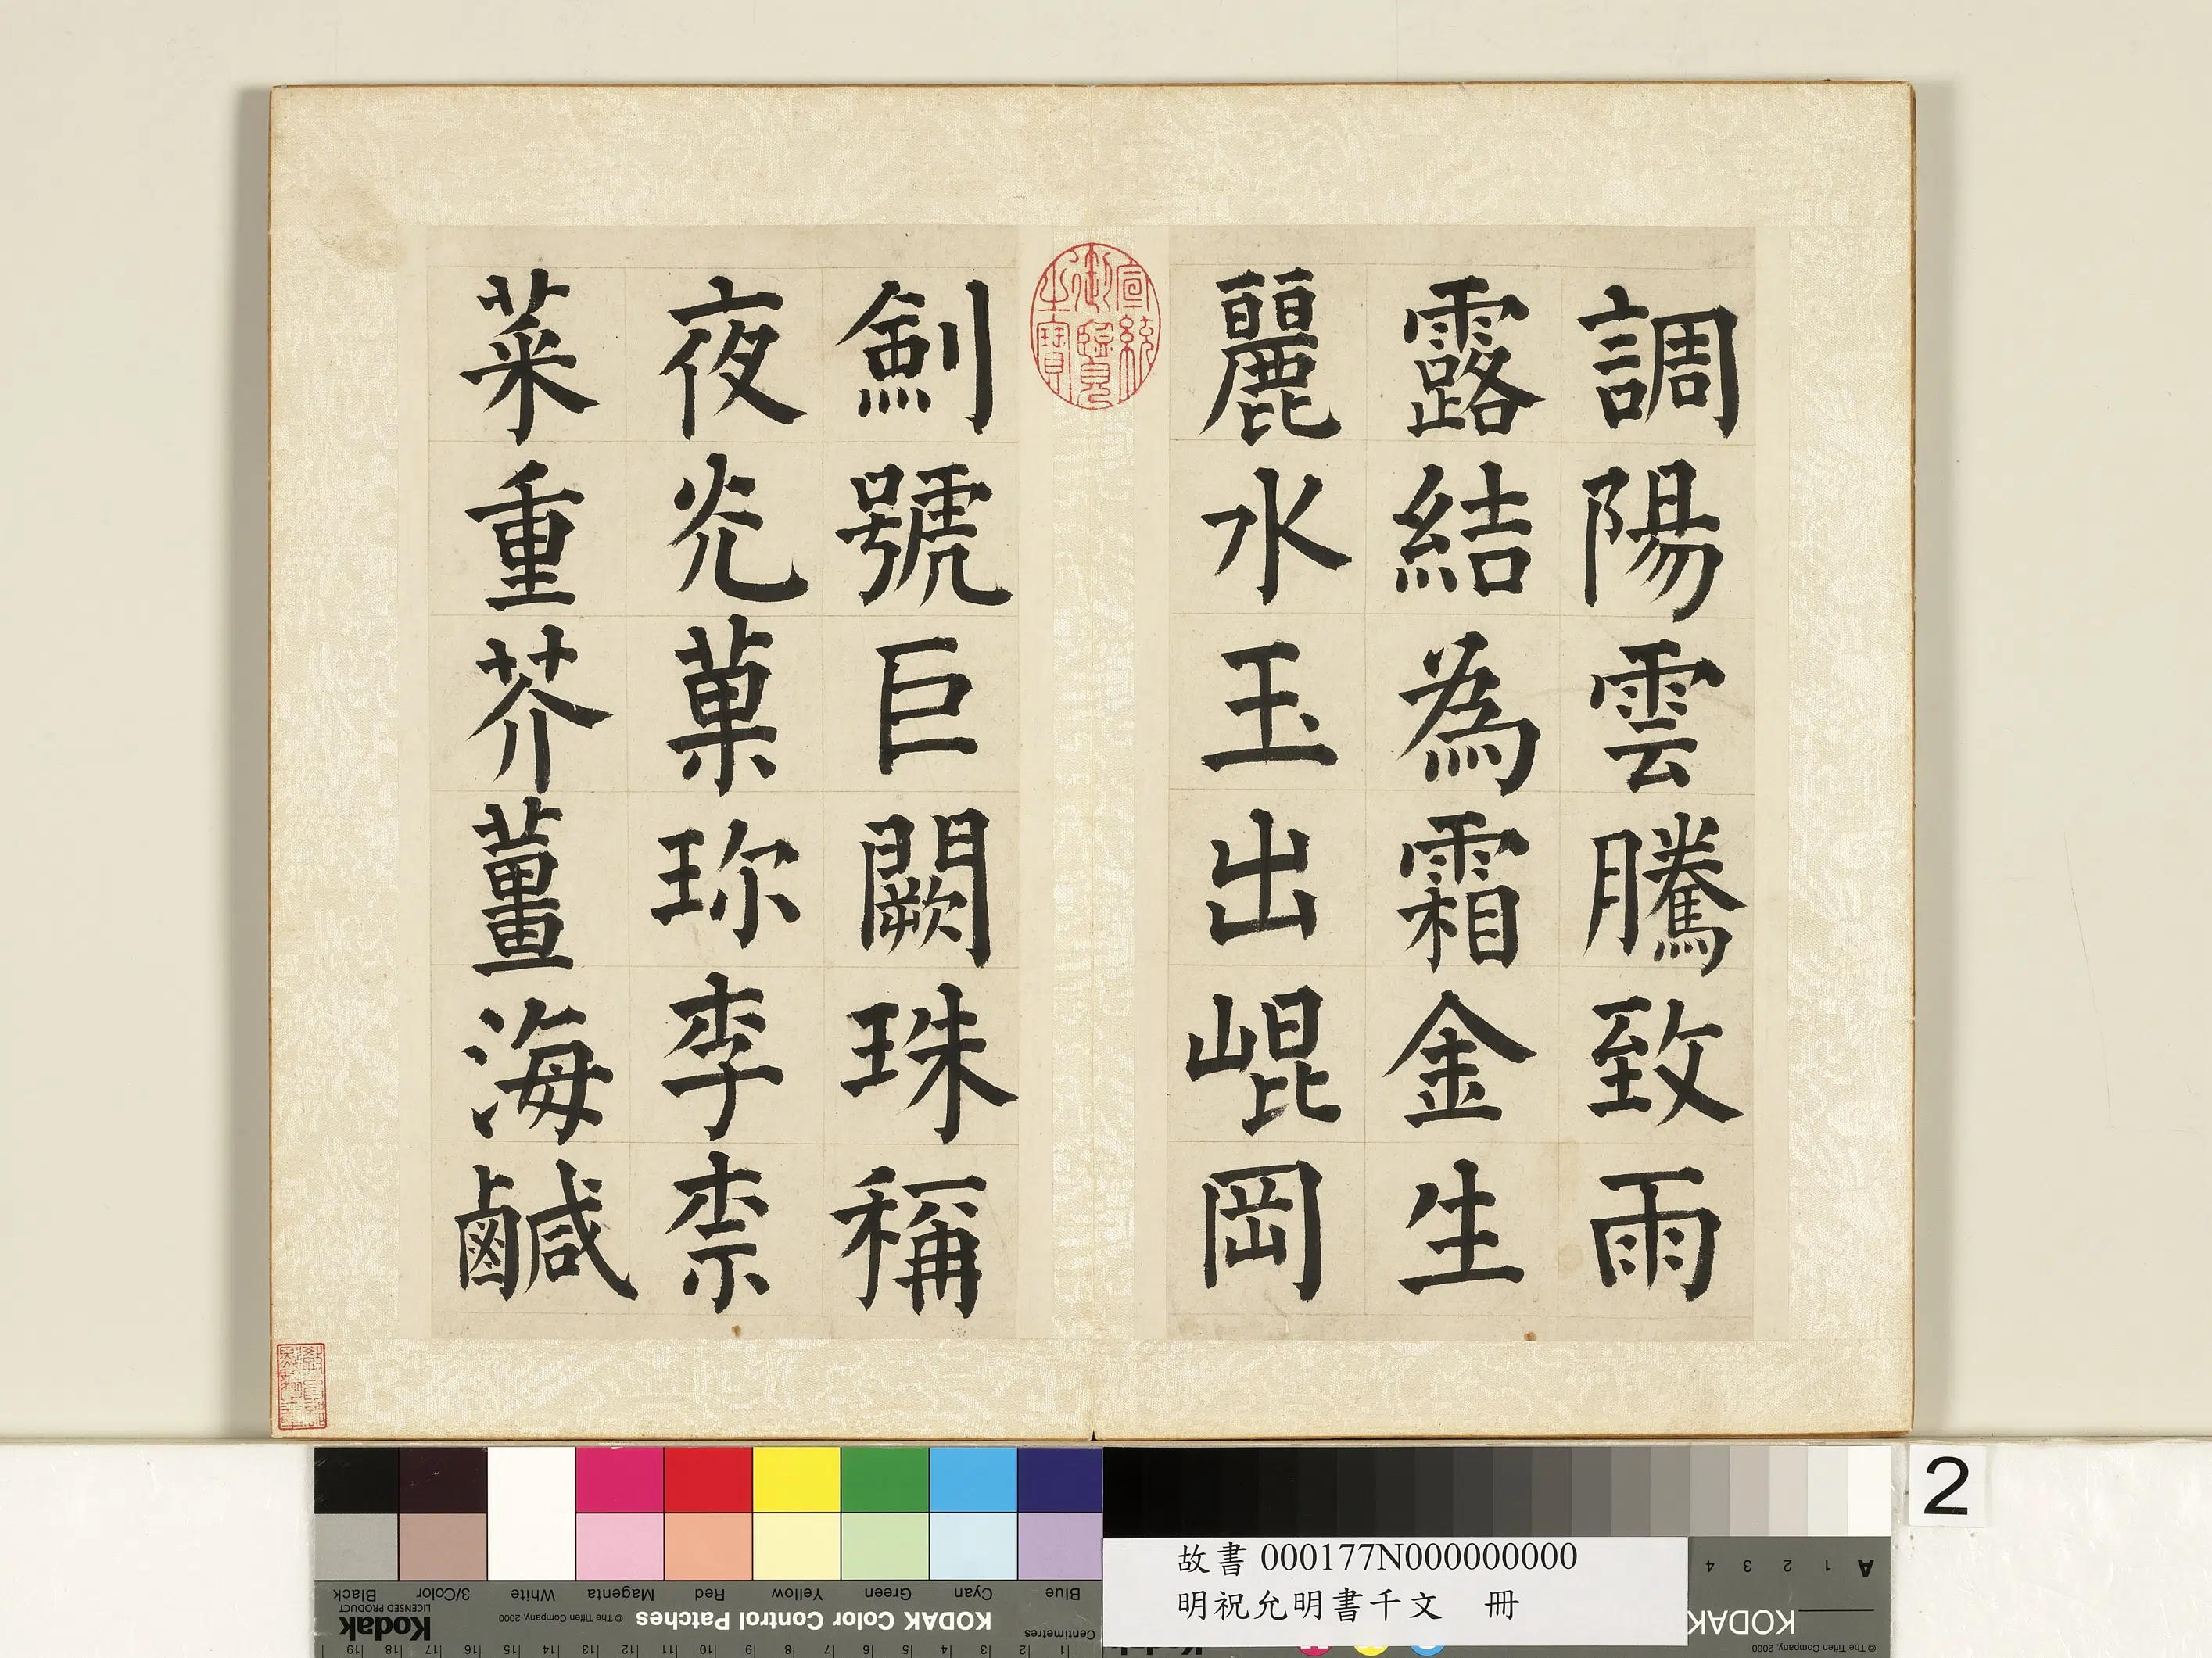 調陽雲騰致雨
露結為霜金生
麗水玉出崐岡
劍號巨闕珠稱
夜光菓珎李柰
菜重芥薑海鹹
宣統御覽之寶
故書 000177N000000000
明祝允明書千文 冊
2
Blue Cyan Green Yellow Red Magenta White 3/Color Black
KODAK Color Control Patches
© The Tiffen Company, 2000
Kodak
LICENSED PRODUCT
Centimetres
1 2 3 4 5 6 7 8 9 10 11 12 13 14 15 16 17 18 19
A 1 2 3 4
KODAK
© The Tiffen Company, 2000